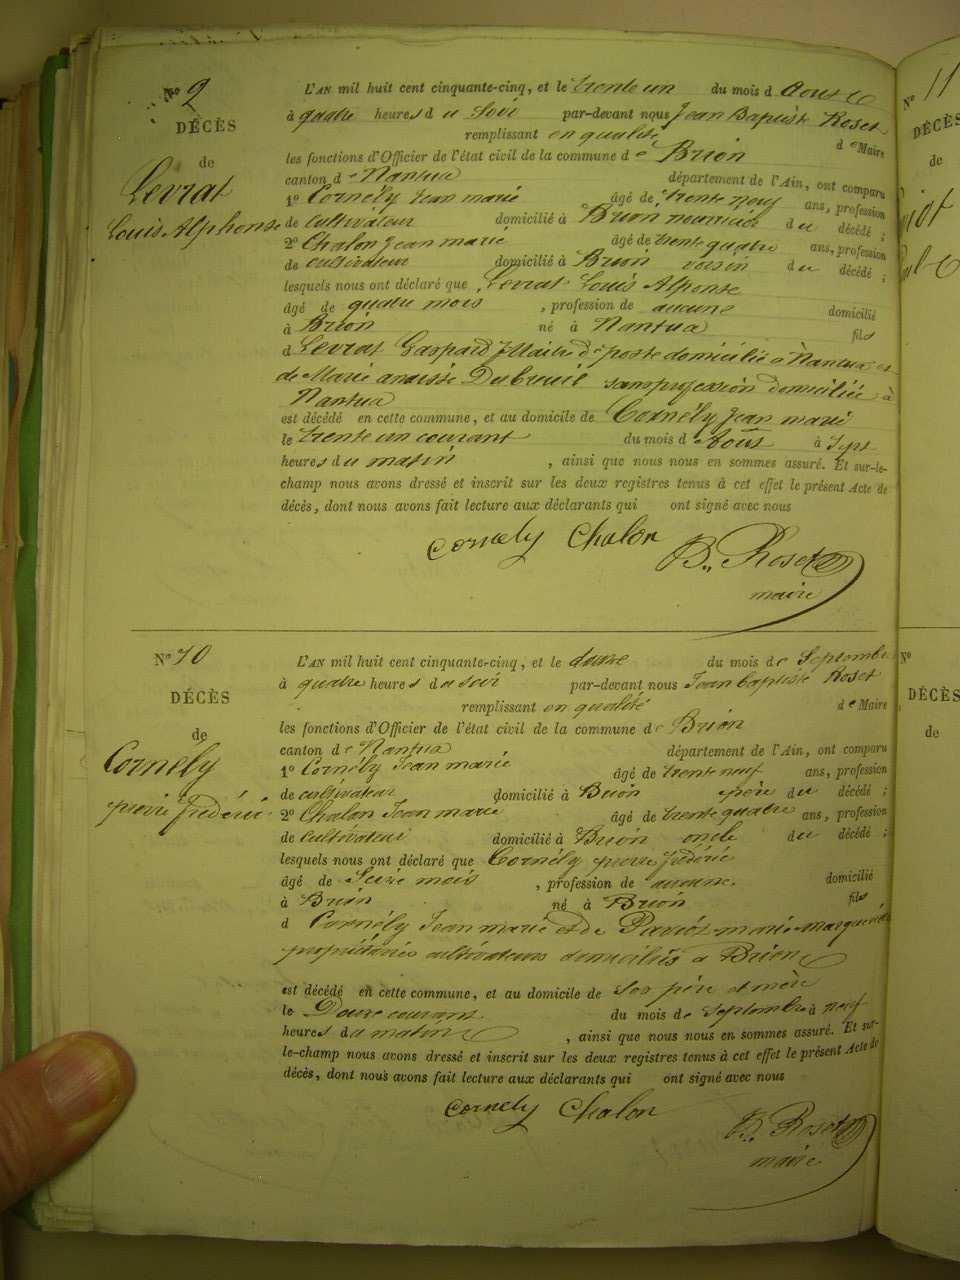 No 9
DÉCÈS
de
Levrat
Louis Alphonse
L'AN mil huit cent cinquante-cinq, et le trente un du mois d Aoust
à quatre heures du soir par-devant nous Jean Baptiste Roset
remplissant en qualité de Maire
les fonctions d'Officier de l'état civil de la commune de Brion
canton de Nantua département de l'Ain, ont comparu
1° Cornély Jean marié âgé de trente neuf ans, profession
de cultivateur domicilié à Brion nourricier du décédé ;
2° Chalon Jean marié âgé de trente quatre ans, profession
de cultivateur domicilié à Brion voisin du décédé ;
lesquels nous ont déclaré que Levrat Louis Alfonse
âgé de quatre mois , profession de aucune domicilié
à Brion né à Nantua fils
d Levrat Gaspard Maitre de poste domicilié à Nantua et
de Marie Dubreuil sans profession domiciliée à
Nantua
est décédé en cette commune, et au domicile de Cornély Jean marié
le trente un courant du mois d Août à Sept
heures du matin , ainsi que nous nous en sommes assuré. Et sur-le-
champ nous avons dressé et inscrit sur les deux registres tenus à cet effet le présent Acte de
décès, dont nous avons fait lecture aux déclarants qui ont signé avec nous
Cornely Chalon B. Roset
maire
No 10
DÉCÈS
de
Cornély
pierre frédéric
L'AN mil huit cent cinquante-cinq, et le douze du mois de Septembre
à quatre heures du soir par-devant nous Jean baptiste Roset
remplissant en qualité de Maire
les fonctions d'Officier de l'état civil de la commune de Brion
canton de Nantua département de l'Ain, ont comparu
1° Cornély Jean marié âgé de trente neuf ans, profession
de cultivateur domicilié à Brion père du décédé ;
2° Chalon Jean marié âgé de trente quatre ans, profession
de cultivateur domicilié à Brion oncle du décédé ;
lesquels nous ont déclaré que Cornély pierre frédéric
âgé de Seize mois , profession de aucune. domicilié
à Brion né à Brion fils
d Cornély Jean marié et de marié
propriétaires cultivateurs domiciliés à Brion
est décédé en cette commune, et au domicile de ses père et mère
le Douze courant du mois de Septembre à neuf
heures du matin , ainsi que nous nous en sommes assuré. Et sur-
le-champ nous avons dressé et inscrit sur les deux registres tenus à cet effet le présent Acte de
décès, dont nous avons fait lecture aux déclarants qui ont signé avec nous
Cornely Chalon
B. Roset
maire
No 11
DÉCÈS
de
No
DÉCÈS
de